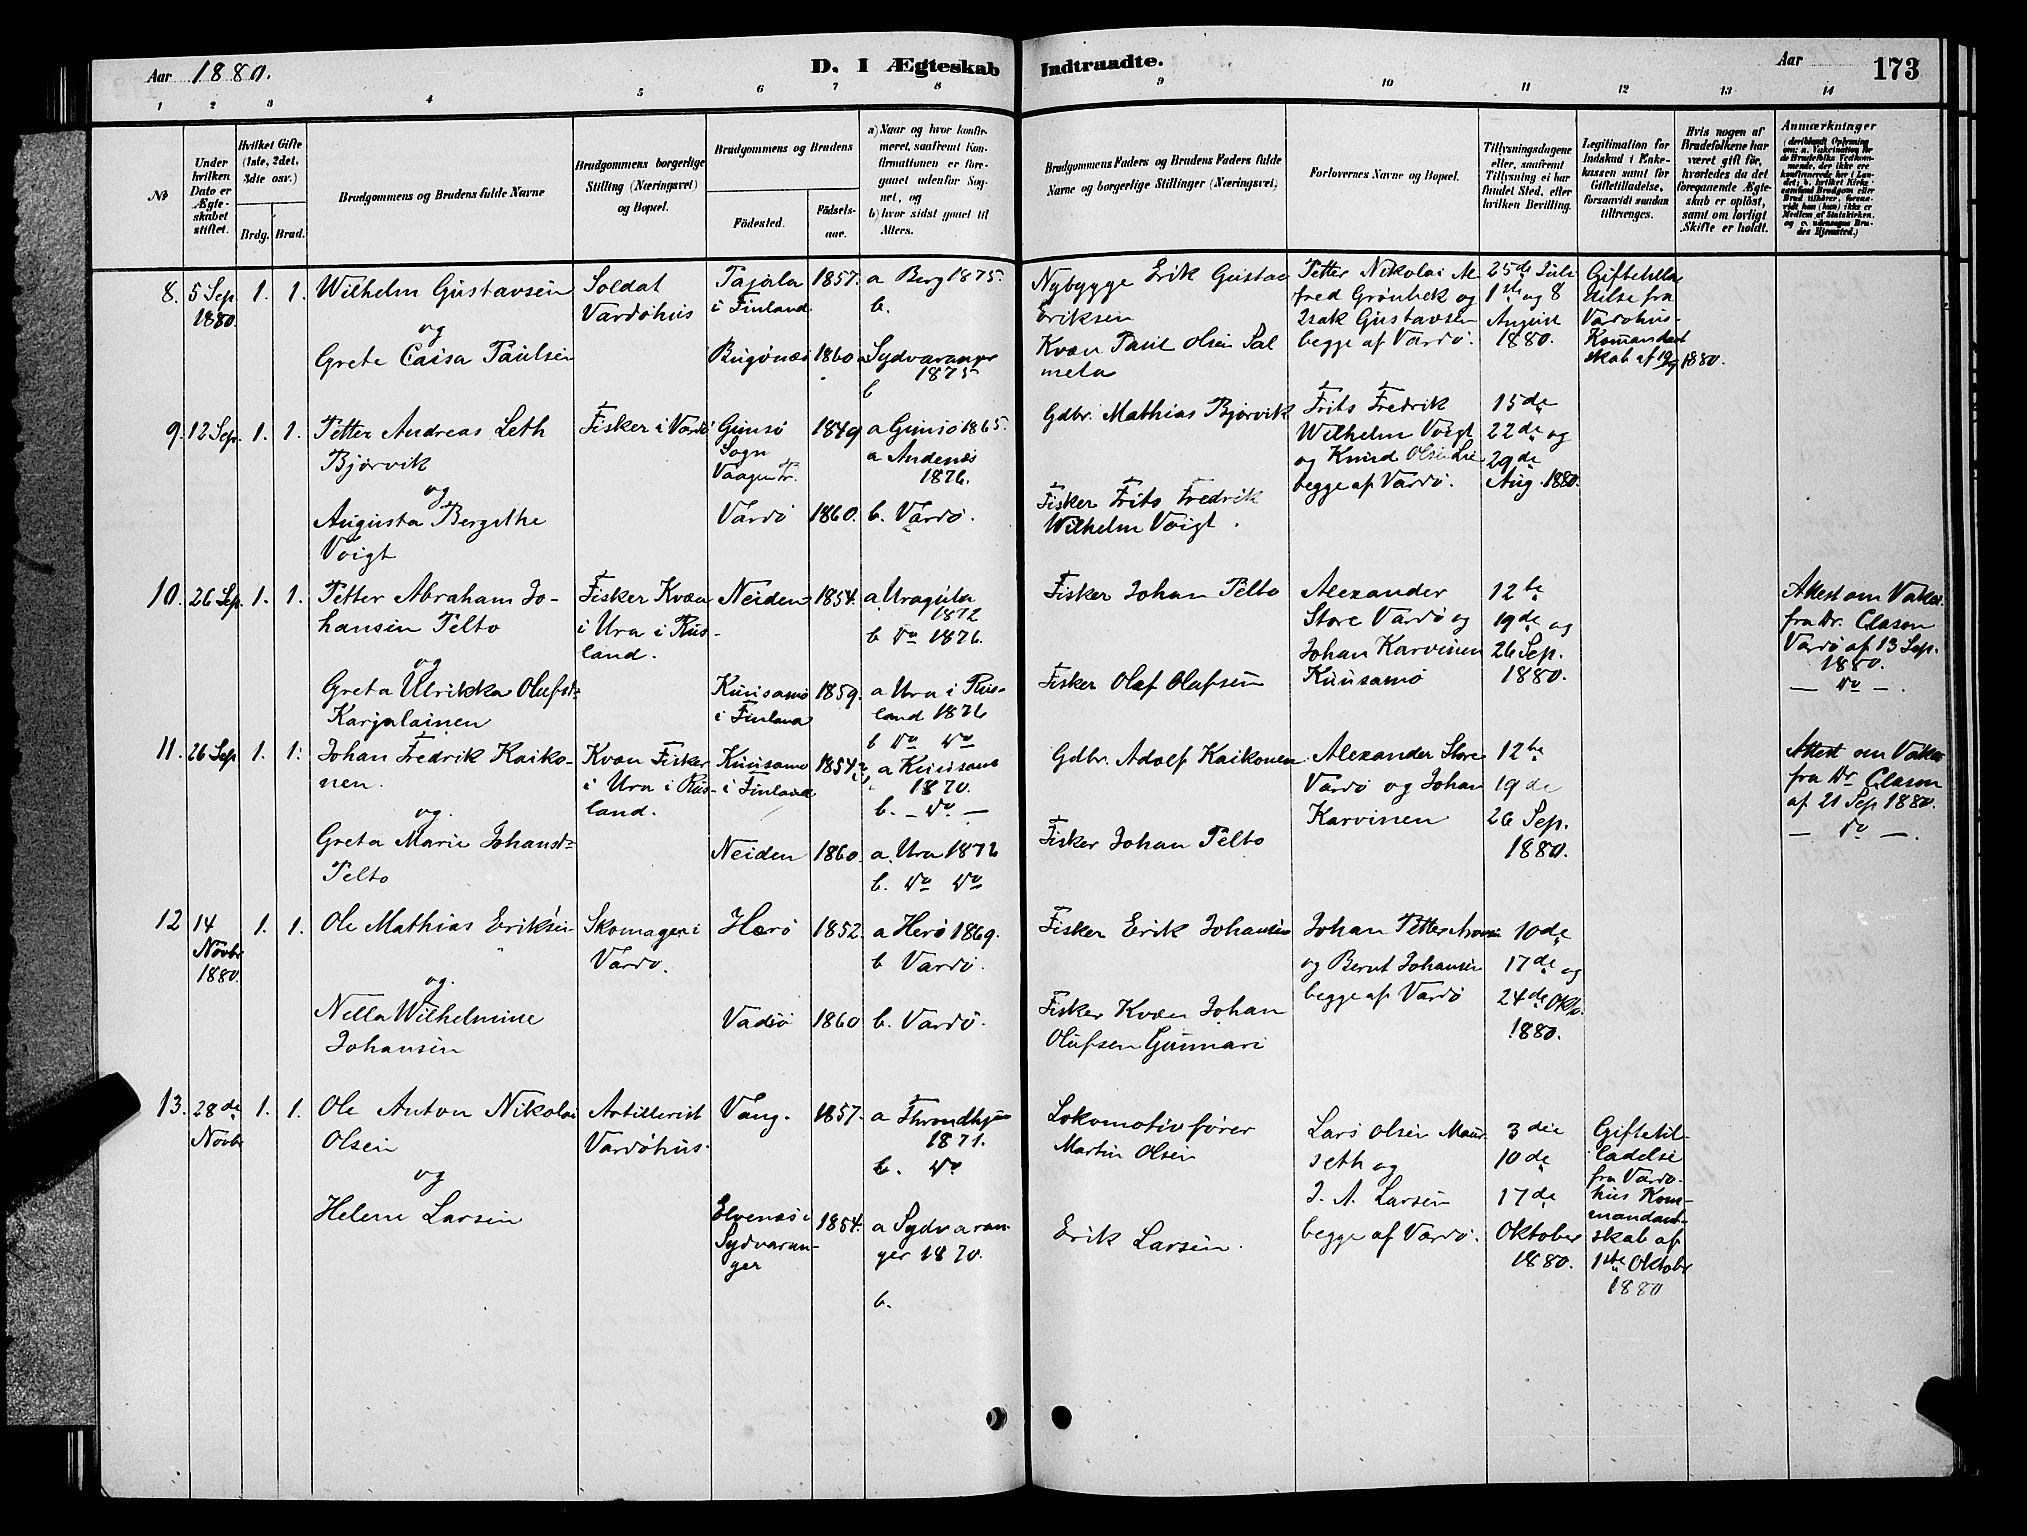 Aar 1880.
D. I Ægteskab Indtraadte.
Aar
173
1 2 3 4 5 6 7 8 9 10 11 12 13 14
No
Under hvilken Dato er Ægteskabet stiftet.
Hvilket Gifte (1ste, 2det, 3die osv.)
Brdg. Brud.
Brudgommens og Brudens fulde Navne
Brudgommens borgerlige Stilling (Næringsvei) og Bopæl.
Brudgommens og Brudens
Födested.
Födselsaar.
a) Naar og hvor konfirmeret, saafremt Konfirmationen er foregaaet udenfor Sognet, og
b) hvor sidst gaaet til Alters.
Brudgommens Faders og Brudens Faders fulde Navne og borgerlige Stillinger (Næringsvei)
Forlovernes Navne og Bopæl.
Tillysningsdagene eller, saafremt Tillysning ei har fundet Sted, efter hvilken Bevilling.
Legitimation for Indskud i Enkekassen samt for Giftetilladelse, forsaavidt saadan tiltrænges.
Hvis nogen af Brudefolkene har været gift för, hvorledes da det foregaaende Ægteskab er oplöst, samt om lovligt Skifte er holdt.
Anmærkninger
8. 5 Sep. 1880. 1. 1.
Wilhelm Gustavsen
og
Grete Caisa Paulsen
Soldat
Vardöhus
Tajala
i Finland
1857.
a Berg 1875.
b.
Bugönæs
1860
a Sydvaranger
1875
b
Nybygge Erik Gustav
Eriksen
Kvæn Paul Olsen Pal
mela
Petter Nikolai Al
fred Grönbek og
Isak Gustavsen
begge af Vardö.
25de Juli
1ste og 8
August
1880.
Giftetilla
delse fra
Vardöhus-
Komandant
skab af
1880.
9. 12 Sep. 1. 1.
Petter Andreas Leth
Bjørvik
og
Augusta Bergithe
Voigt
Fisker i Vardö
Gimsö
Sogn
Vaagen Pr.
1849
a Gimsö 1865.
a Andenæs
1876.
Vardö
1860.
b. Vardö.
Gdbr. Mathias Bjørvik
Fisker Frits Fredrik
Wilhelm Voigt.
Frits Fredrik
Wilhelm Voigt
og Knud Olsen Lie
begge af Vardö.
15de
22de og
29de
Aug. 1880.
10. 26 Sep. 1. 1.
Petter Abraham Jo-
hansen Pelto
og
Greta Ulrikka Olufsd-
Karjalainen
Fisker Kvæn
i Ura i Rus-
land.
Neiden
1854.
a Uraguba
1872
b. Do 1876.
Kuusamo
i Finland
1859.
a Ura i Rus-
land 1876
b Do Do
Fisker Johan Pelto
Fisker Olaf Olufsen
Alexander
Store Vardö og
Johan Karvinen
Kuusamö
12te
19de og
26 Sep.
1880.
Attest om Vakci.
fra Dr. Clason
Vardö af 13 Sep.
1880.
— Do —.
11. 26 Sep 1. 1.
Johan Fredrik Kaiko-
nen.
og.
Greta Marie Johansd-
Pelto
Kvæn Fisker
i Ura i Rus-
land.
Kuusamo
i Finland
1854
a Kuusamo
1870.
b. — Do. —
Neiden
1860.
a. Ura 1876
b. Do Do
Gdbr. Adolf Kaikonen
Fisker Johan Pelto
Alexander Store
Vardö og Johan
Karvinen
12te
19de
26 Sep.
1880.
Attest om Vakci
fra Dr Clason
af 21 Sep 1880.
— Do —.
12 14 Novbr 1880. 1. 1.
Ole Mathias Eriksen
og.
Nella Wilhelmine
Johansen
Skomager i
Vardö.
Herö
1852.
a Herö 1869.
b Vardö.
Vadsö
1860
b. Vardö.
Fisker Erik Johansen
Fisker Kvæn Johan
Olufsen Gunnari
Johan Petter
og Bernt Johansen
begge af Vardö
10de
17de og
24de Okto.
1880.
13. 28de Novbr 1. 1.
Ole Anton Nikolai
Olsen
og
Helene Larsen
Artillerist
Vardöhus.
Vang.
1857.
a Throndhjem
1871.
b. Do
Elvenæs i
Sydvaran-
ger
1854.
a Sydvaran-
ger 1870.
b.
Lokomotivfører
Martin Olsen
Erik Larsen.
Lars Olsen Maur
seth og
J. A. Larsen
begge af Vardö.
3die
10de
17de
Oktober
1880.
Giftetil-
ladelse
fra Vardö-
hus Kom-
mandant-
skab af
1ste Oktobr
1880